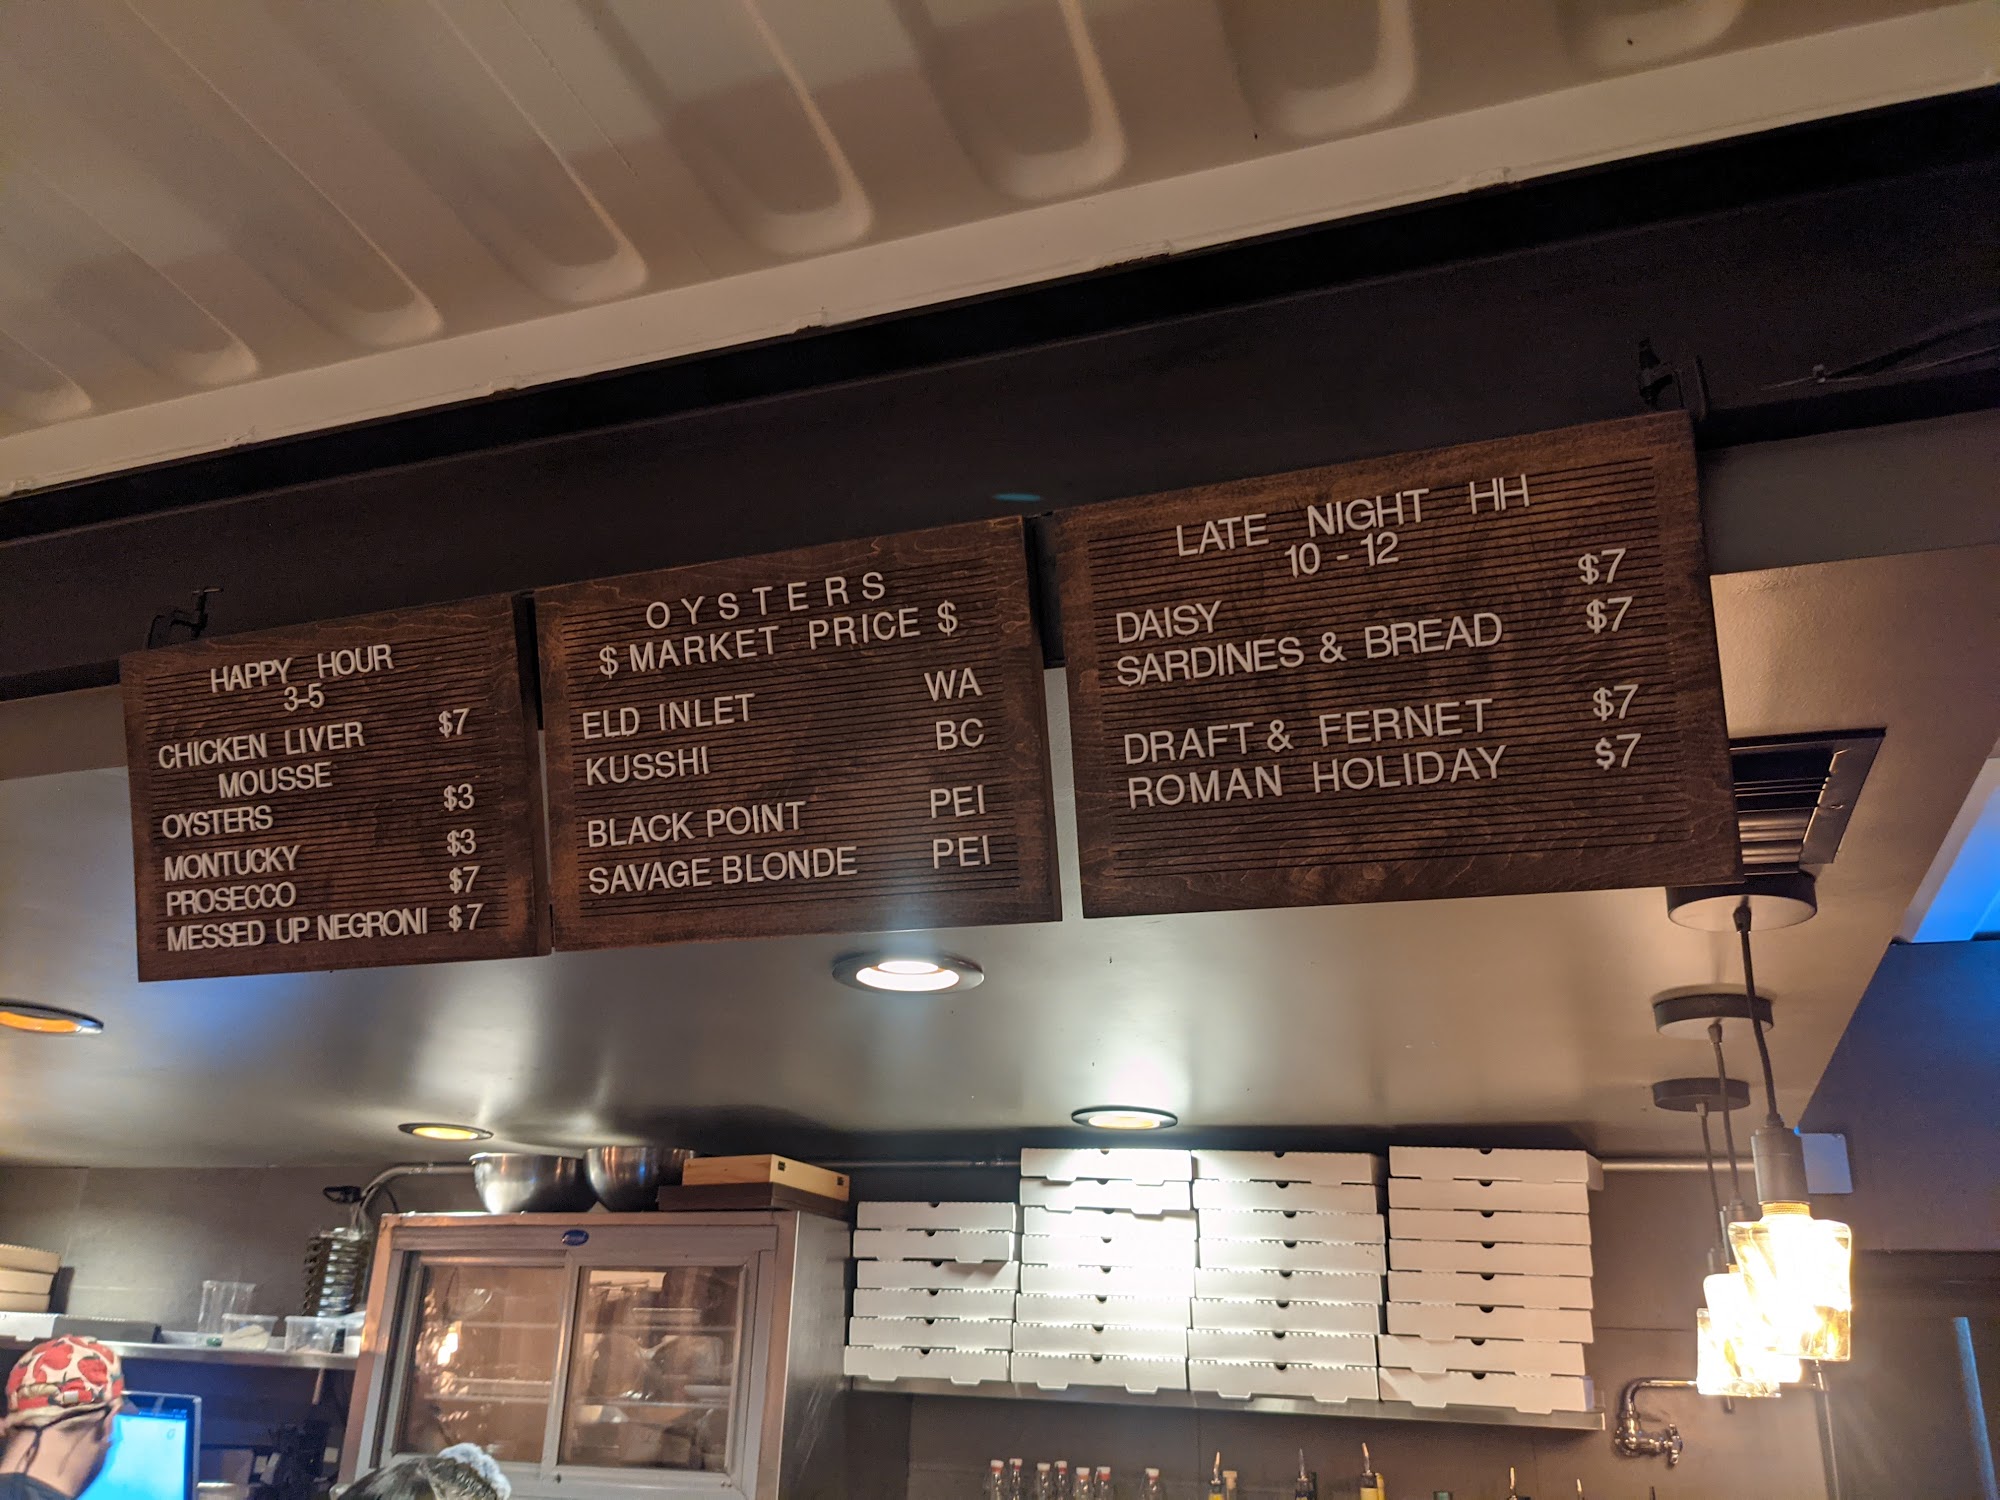 HAPPY HOUR
3-5
CHICKEN LIVER $7
MOUSSE
OYSTERS $3
MONTUCKY $3
PROSECCO $7
MESSED UP NEGRONI $7
OYSTERS
$ MARKET PRICE $
ELD INLET WA
KUSSHI BC
BLACK POINT PEI
SAVAGE BLONDE PEI
LATE NIGHT HH
10 - 12
DAISY $7
SARDINES & BREAD $7
DRAFT & FERNET $7
ROMAN HOLIDAY $7